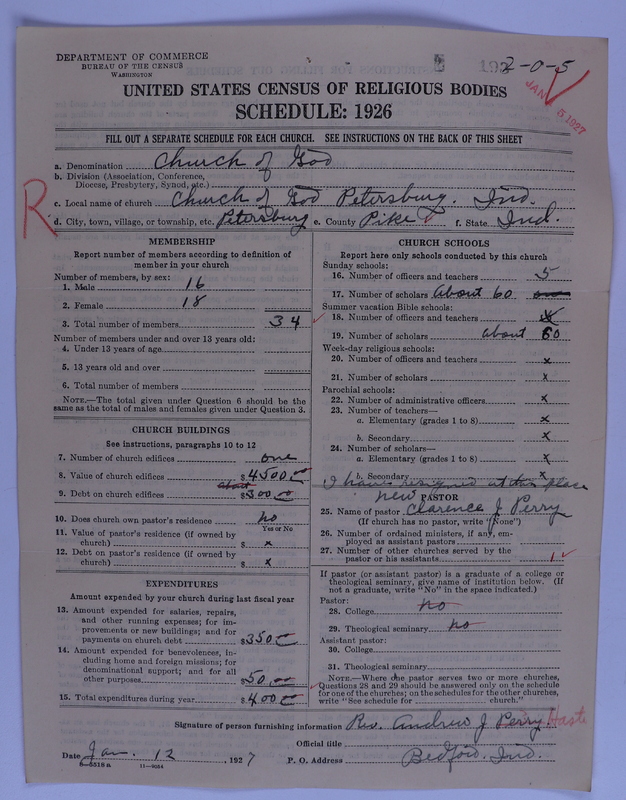 DEPARTMENT OF COMMERCE
BUREAU OF THE CENSUS
WASHINGTON
192 2-0-5
JAN 5 1927
UNITED STATES CENSUS OF RELIGIOUS BODIES
SCHEDULE: 1926
FILL OUT A SEPARATE SCHEDULE FOR EACH CHURCH. SEE INSTRUCTIONS ON THE BACK OF THIS SHEET
R
a. Denomination Church of God
b. Division (Association, Conference,
Diocese, Presbytery, Synod, etc.)
c. Local name of church Church of God Petersburg. Ind.
d. City, town, village, or township, etc. Petersburg e. County Pike f. State Ind.
MEMBERSHIP
Report number of members according to definition of
member in your church
Number of members, by sex:
1. Male 16
2. Female 18
3. Total number of members 34
Number of members under and over 13 years old:
4. Under 13 years of age
5. 13 years old and over
6. Total number of members
NOTE.—The total given under Question 6 should be the
same as the total of males and females given under Question 3.
CHURCH BUILDINGS
See instructions, paragraphs 10 to 12
7. Number of church edifices one
8. Value of church edifices $4500 00
about
9. Debt on church edifices $300 00
10. Does church own pastor's residence no
Yes or No
11. Value of pastor's residence (if owned by
church) $ x
12. Debt on pastor's residence (if owned by
church) $ x
EXPENDITURES
Amount expended by your church during last fiscal year
13. Amount expended for salaries, repairs,
and other running expenses; for im-
provements or new buildings; and for
payments on church debt $350 00
14. Amount expended for benevolences, in-
cluding home and foreign missions; for
denominational support; and for all
other purposes $50.00
15. Total expenditures during year $400 00
CHURCH SCHOOLS
Report here only schools conducted by this church
Sunday schools:
16. Number of officers and teachers 5
17. Number of scholars About 60
Summer vacation Bible schools:
18. Number of officers and teachers x
19. Number of scholars about 60
Week-day religious schools:
20. Number of officers and teachers x
21. Number of scholars x
Parochial schools:
22. Number of administrative officers x
23. Number of teachers—
a. Elementary (grades 1 to 8) x
b. Secondary x
24. Number of scholars—
a. Elementary (grades 1 to 8) x
b. Secondary x
I have resigned at this place
new PASTOR
25. Name of pastor Clarence J Perry
(If church has no pastor, write "None")
26. Number of ordained ministers, if any, em-
ployed as assistant pastors
27. Number of other churches served by the
pastor or his assistants 1
If pastor (or assistant pastor) is a graduate of a college or
theological seminary, give name of institution below. (If
not a graduate, write "No" in the space indicated.)
Pastor:
28. College no
29. Theological seminary no
Assistant pastor:
30. College
31. Theological seminary
NOTE.—Where one pastor serves two or more churches,
Questions 28 and 29 should be answered only on the schedule
for one of the churches; on the schedules for the other churches,
write "See schedule for church."
Signature of person furnishing information Rev. Andrew J Perry
Official title
Date Jan. 12, 1927 P. O. Address Bedford. Ind.
8-5518a 11-9054